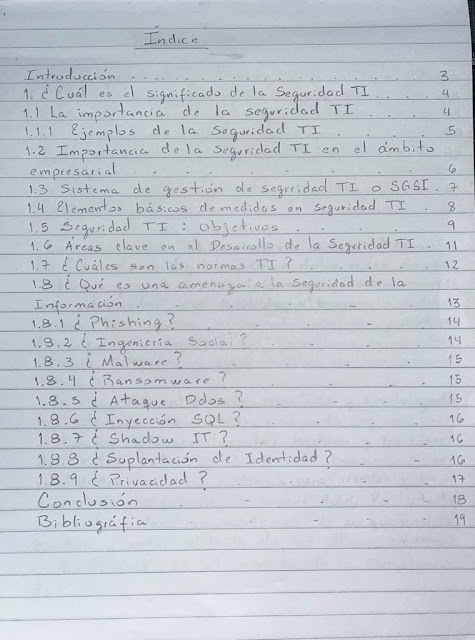 Índice
Introducción . . . . . . . . . . . 3
1. ¿Cuál es el significado de la Seguridad TI . . . 4
1.1 La importancia de la seguridad TI . . . 4
1.1.1 Ejemplos de la Seguridad TI . . . . 5
1.2 Importancia de la Seguridad TI en el ámbito
empresarial . . . . . . . . 6
1.3 Sistema de gestión de segrridad TI o SGSI. 7
1.4 Elementos básicos de medidas en seguridad TI . 8
1.5 Seguridad TI : objetivos . . . . 9
1.6 Áreas clave en el Desarollo de la Seguridad TI . 11
1.7 ¿Cuáles son las normas TI? . . . . 12
1.8 ¿Qué es una amenaza a la Seguridad de la
Información . - . - - 13
1.8.1 ¿Phishing? . - . - 14
1.8.2 ¿Ingeniería Social? . - 14
1.8.3 ¿Malware? - . - 15
1.8.4 ¿Ransomware? - - 15
1.8.5 ¿Ataque Ddos? - - 15
1.8.6 ¿Inyección SQL? - - 16
1.8.7 ¿Shadow IT? - . - 16
1.8.8 ¿Suplantación de Identidad? - - 16
1.8.9 ¿Privacidad? - - - 17
Conclusión - - - 18
Bibliográfia - - - 19